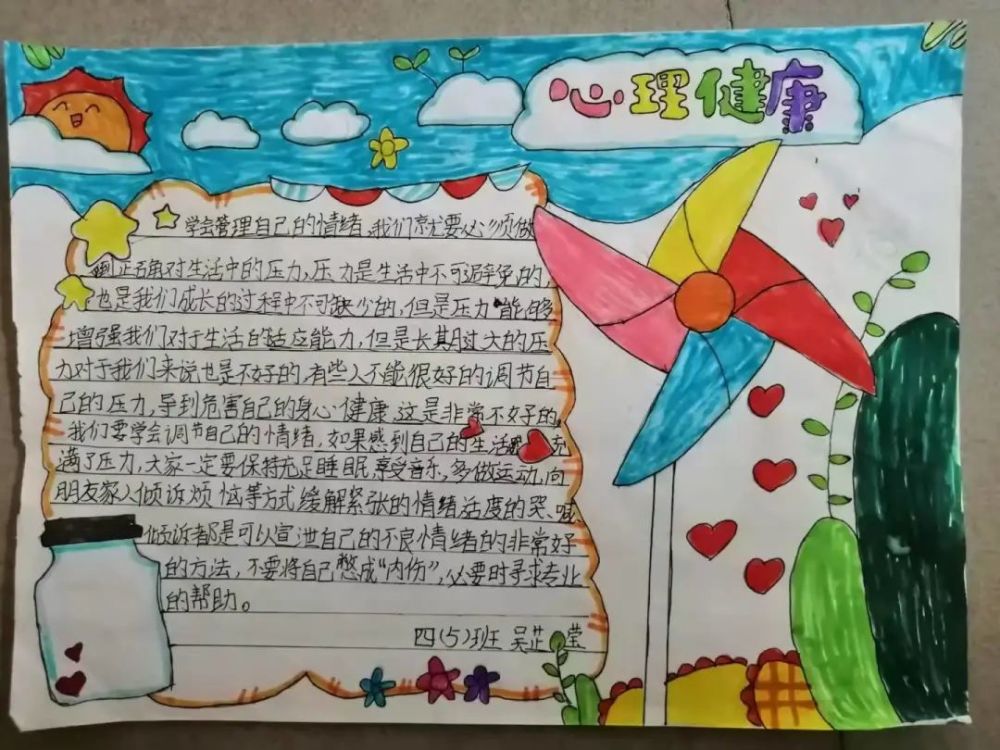 心理健康
学会管理自己的情绪，我们就要必须做
到正确对生活中的压力，压力是生活中不可避免的，
也是我们成长的过程中不可缺少的，但是压力能够
增强我们对于生活的适应能力，但是长期过大的压
力对于我们来说也是不好的，有些人不能很好的调节自
己的压力，导到危害自己的身心健康，这是非常不好的，
我们要学会调节自己的情绪，如果感到自己的生活充
满了压力，大家一定要保持充足睡眠，享受音乐，多做运动，向
朋友家人倾诉烦恼等方式缓解紧张的情绪，适度的哭、喊、
倾诉都是可以宣泄自己的不良情绪的非常好
的方法，不要将自己憋成“内伤”，必要时寻求专业
的帮助。
四(5)班 吴芷莹